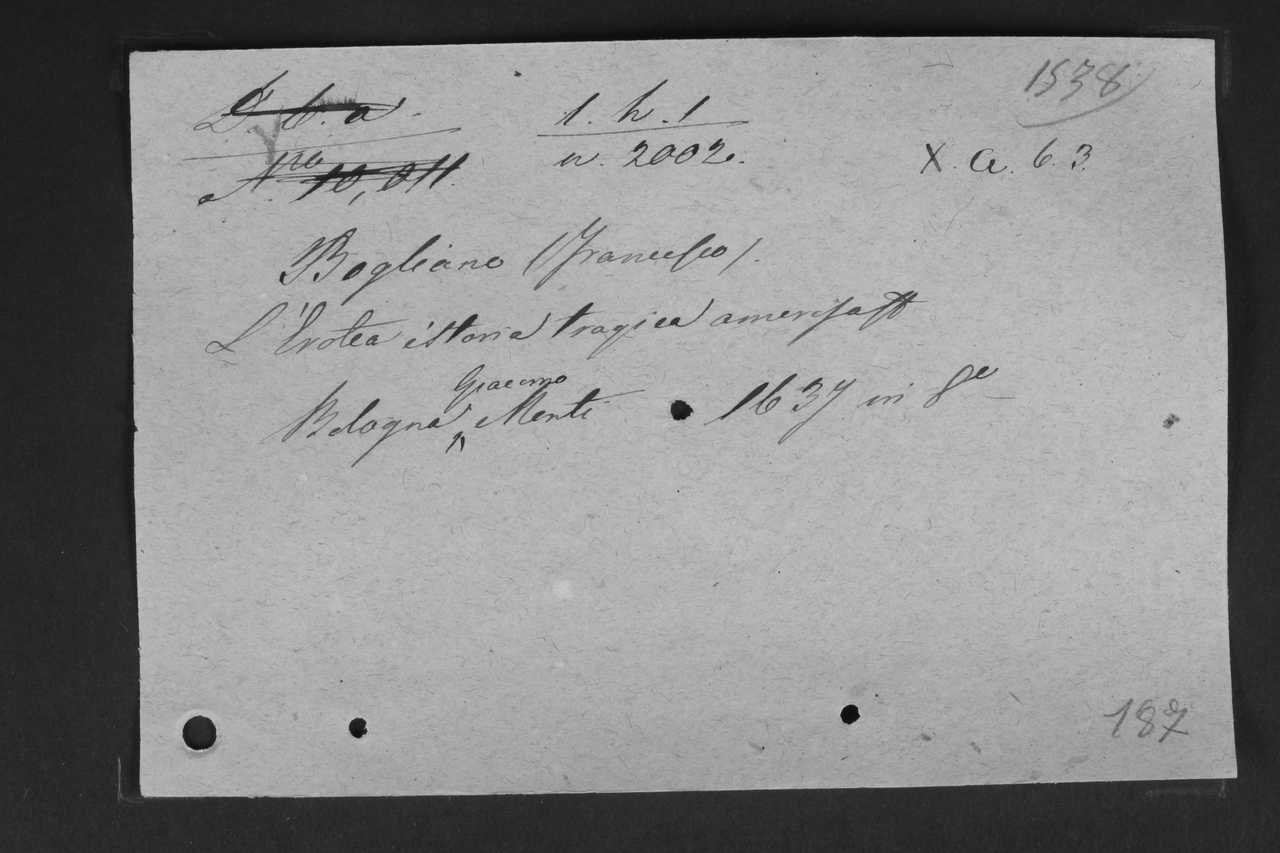 1538
D. b. a.
1. h. 1
Nro 10,011.
n. 2002.
X. a. 6. 3.
Bogliano (Francesco).
L'Erotea istoria tragica
Giacomo
Bologna, Monti 1637 in 8e
187